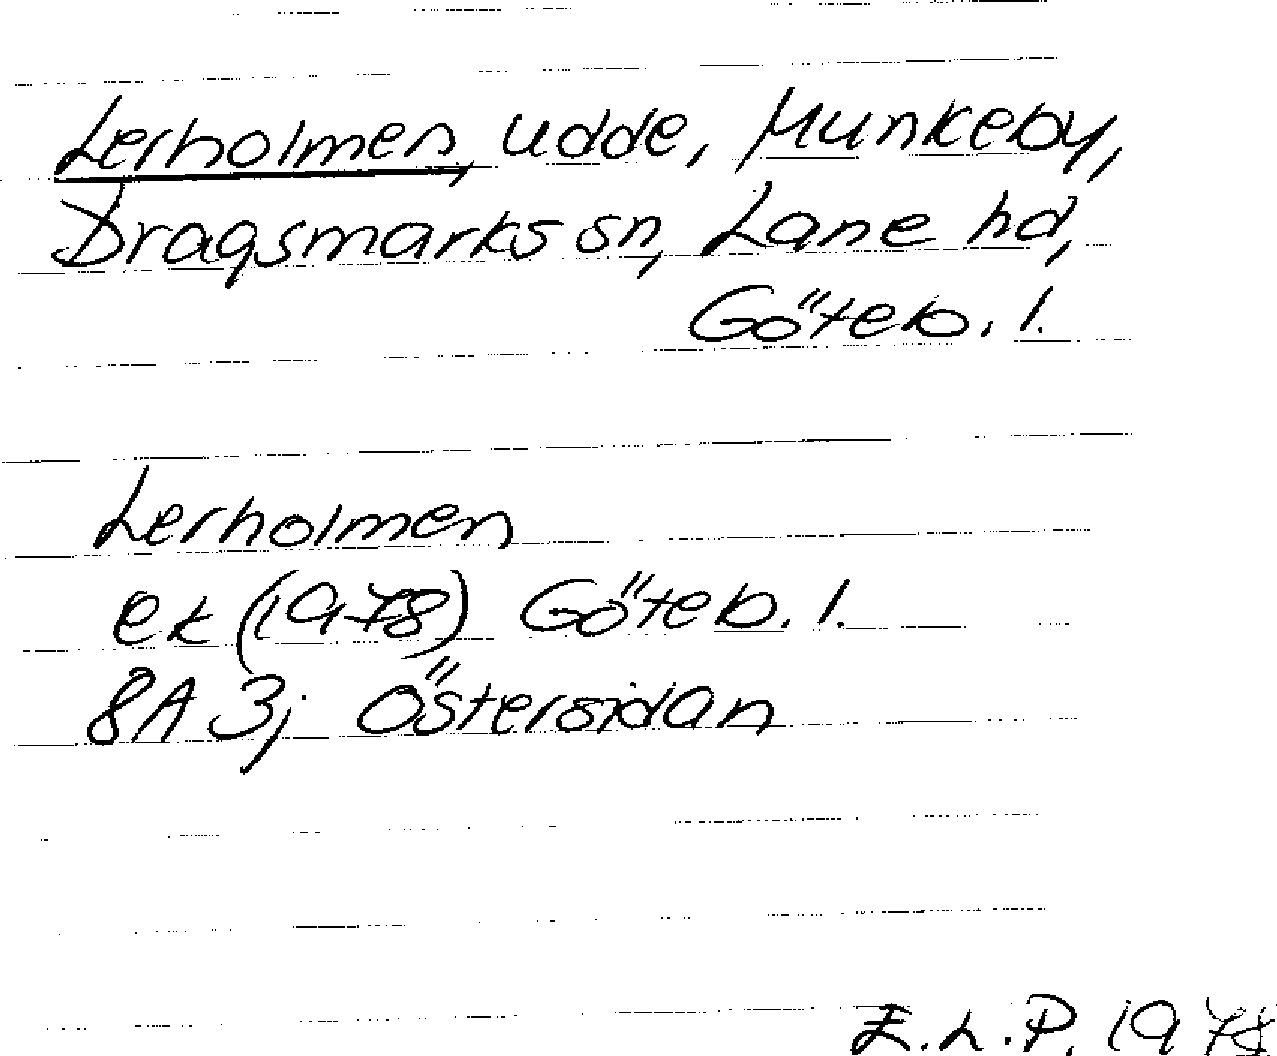 Lerholmen, udde, Munkeby,
Dragsmarks sn, Lane hd,
Göteb. l.
Lerholmen
ek (1978) Göteb. l.
8A 3j Östersidan
E.L.P. 1978